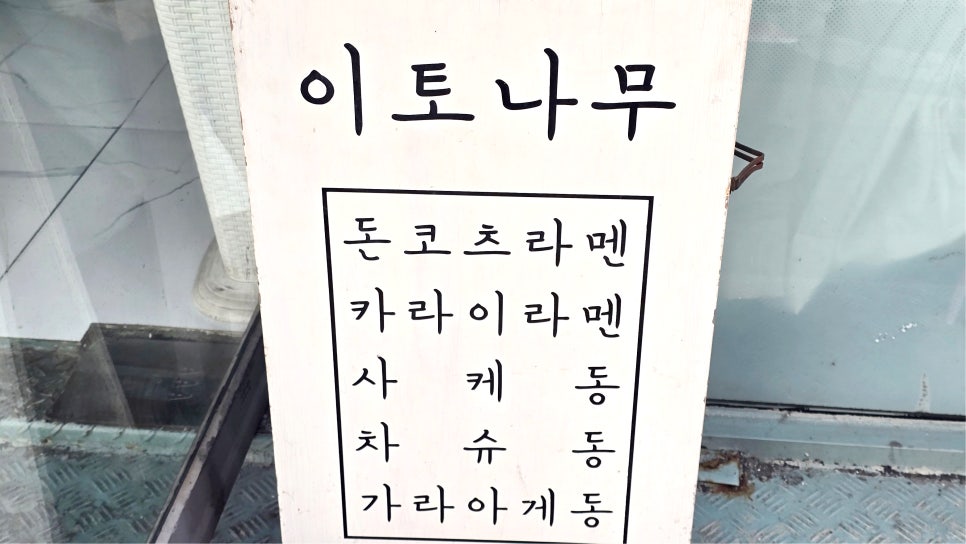 이토나무
돈코츠라멘
카라이라멘
사 케 동
차 슈 동
가라아게동